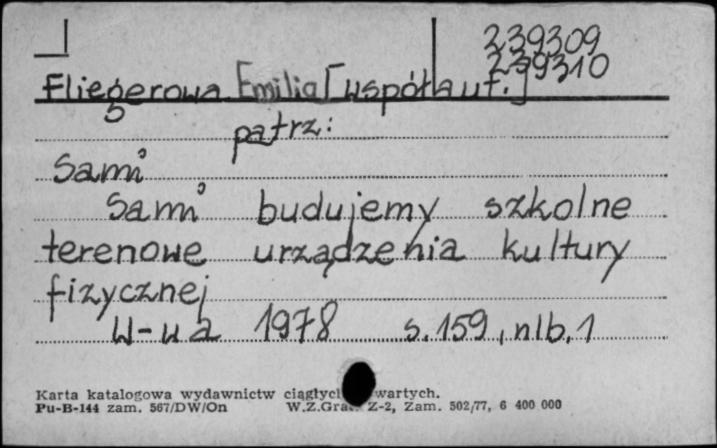 239309
239310
Fliegerowa Emilia [współaut.]
patrz:
Sami
Sami budujemy szkolne
terenowe urządzenia kultury
fizycznej
W-wa 1978 s. 159, nlb. 1
Karta katalogowa wydawnictw
Pu-B-144 zam. 567/DW/On W.Z.Graf. Z-2, Zam. 502/77, 6 400 000